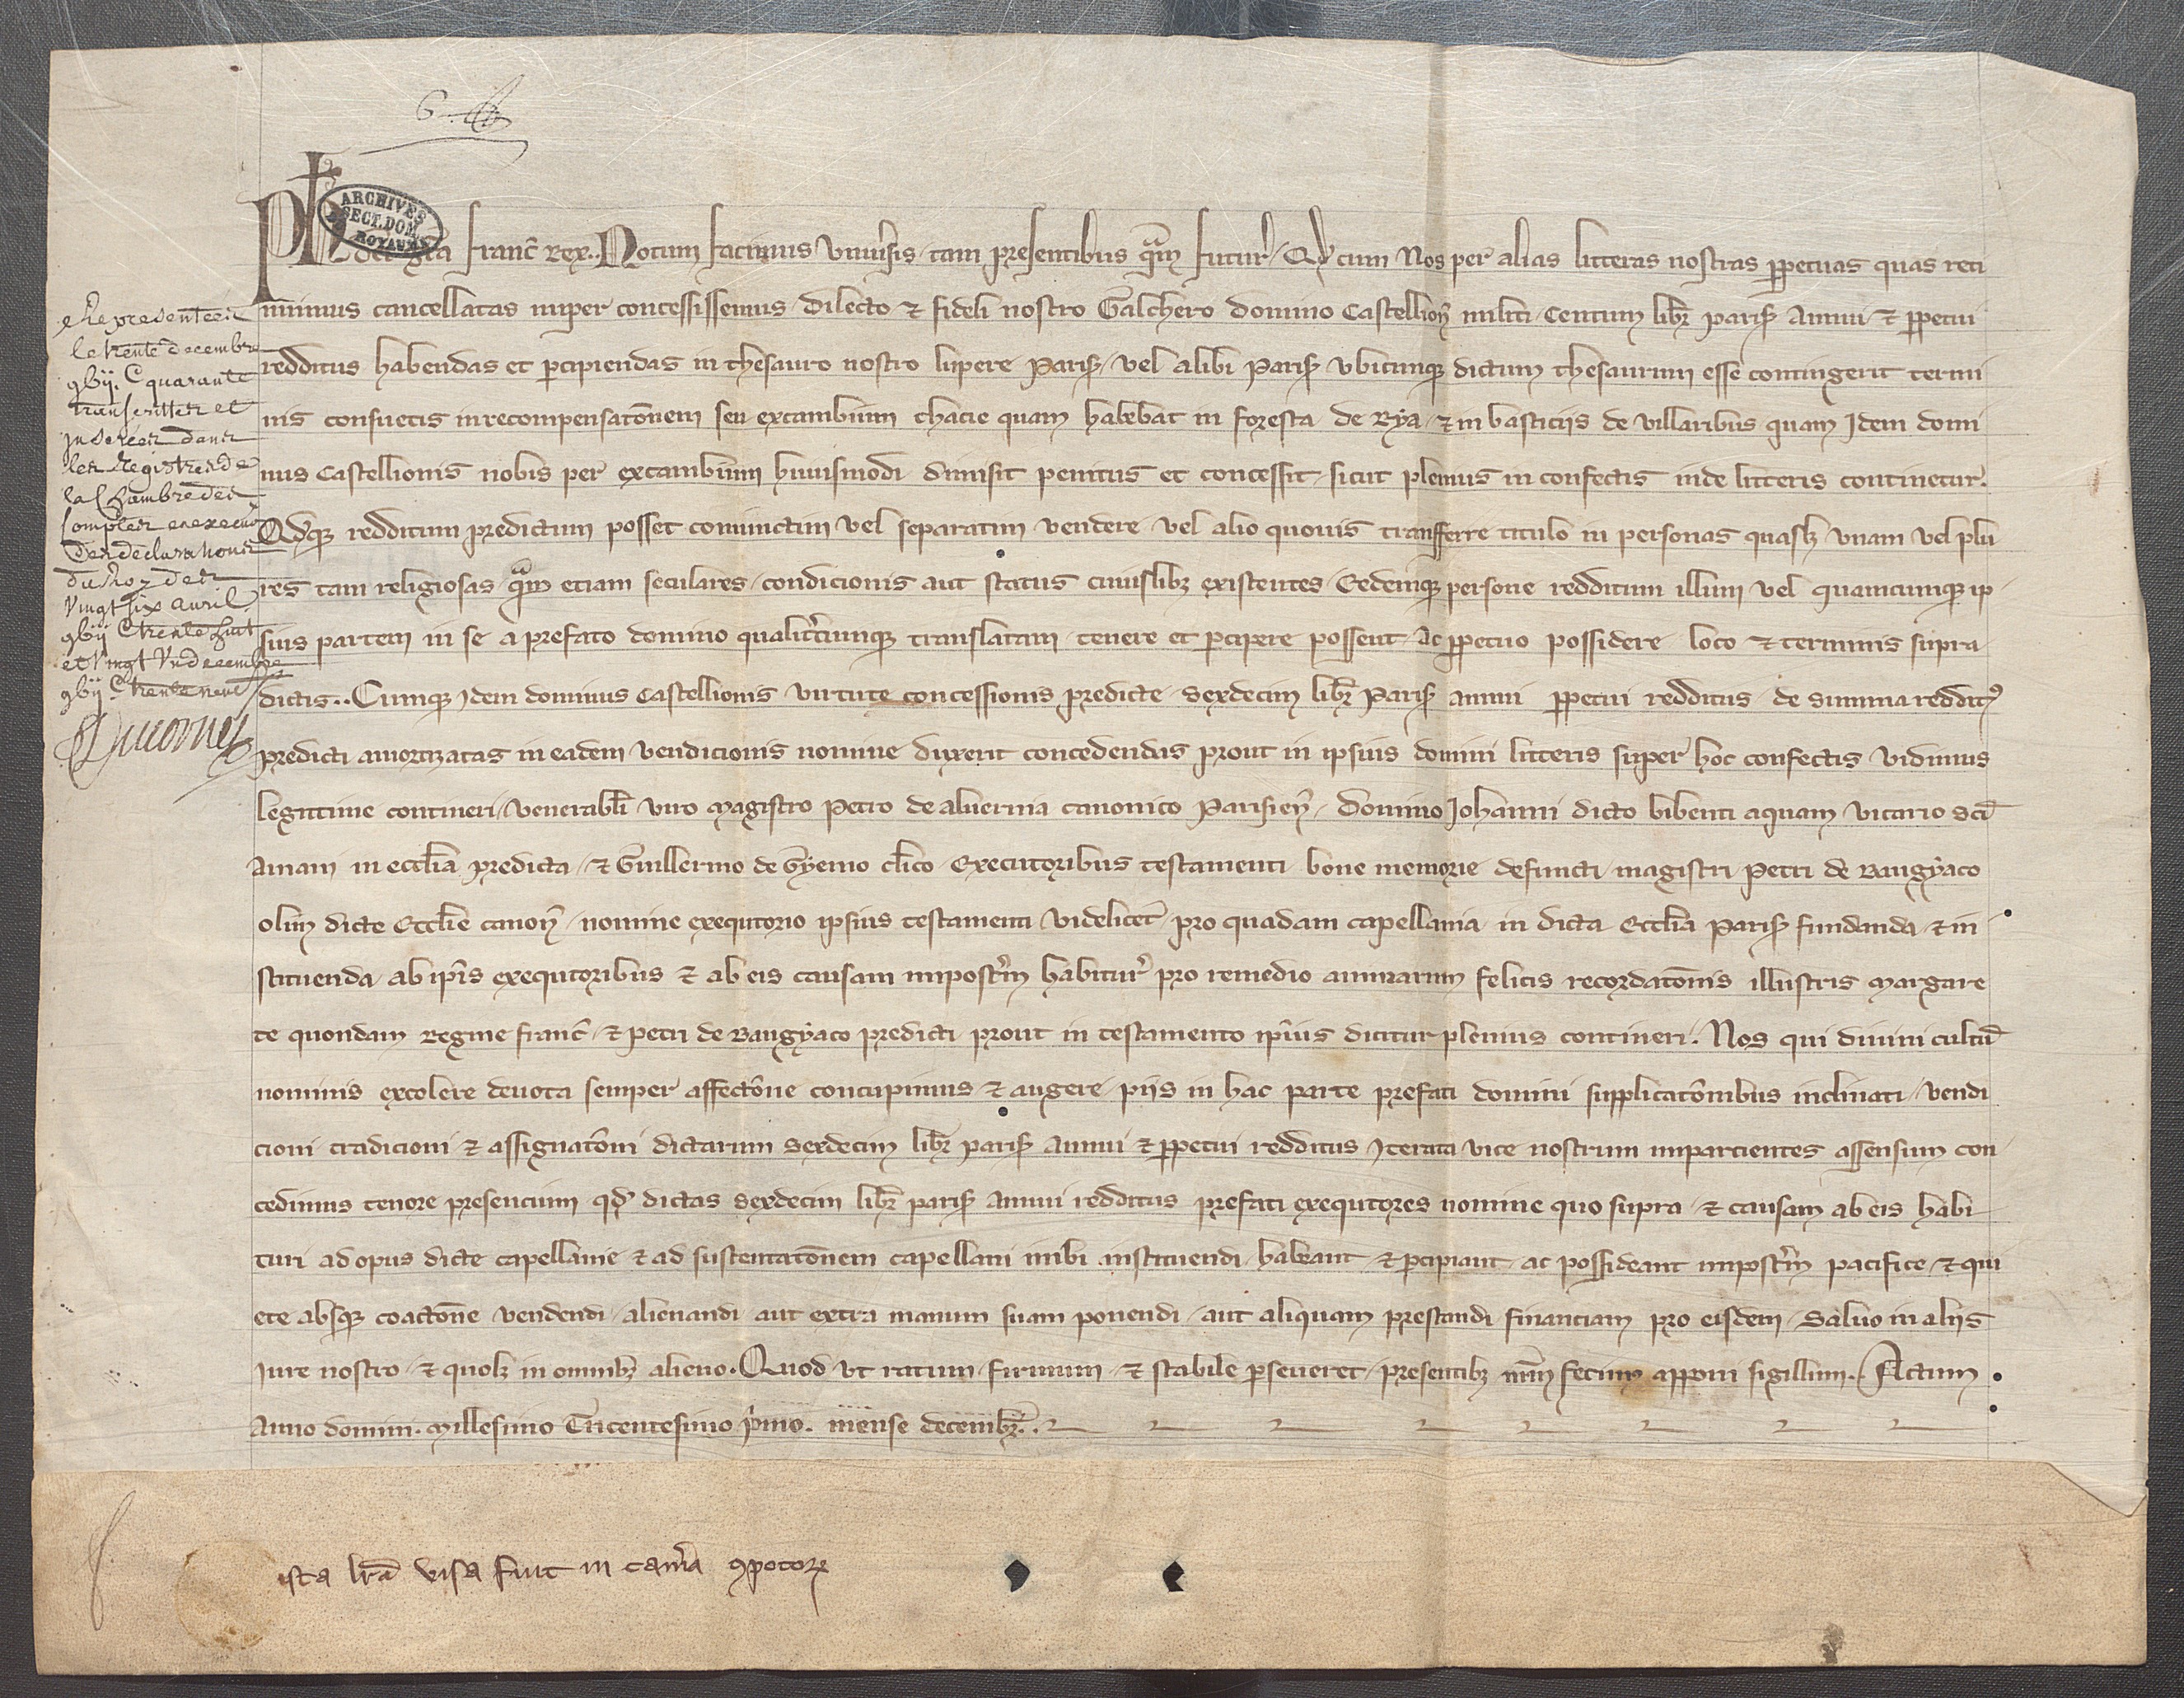 G
ARCHIVES
SECT. DOM.
ROYAUME
Ph dei gra Franc Rex. Notum facimus Universis tam presentibus qam futur Qd cum Nos per alias litteras nostras ppetuas quas reti
nuimus cancellatas nuper concessissemus dilecto et fideli nostro Galchero domino Castellion militi Centum libr Paris Annui et ppetui
redditus habendas et percipiendas in thesauro nostro lupere Paris vel alibi Paris ubicunque dictum thesaurum esse contingerit termi
nis consuetis in recompensatonem seu excambium chacie quam habebat in foresta de Rya et in basticiis de villaribus quam Idem domi
nus Castellionis nobis per excambium huiusmodi dimisit penitus et concessit sicut plenius in confectis inde litteris continetur.
Qdque redditum predictum posset coniunctim vel separatim vendere vel alio quovis transferre titulo in personas quaslz unam vel plu
res tam religiosas qam etiam seculares condicionis aut status cuiuslibz existentes Eedemque persone redditum illum vel quamcumque ip
sius partem in se a prefato domino qualitcumque translatam tenere et percipere possent Ac ppetuo possidere loco et terminis supra
dictis.. Cumque Idem dominus Castellionis virtute concessionis predicte sexdecim libr Paris annui ppetui redditus de summa reddit9
predicti amortizatas in eadem vendicionis nomine duxerit concedendas prout in ipsius domini litteris super hoc confectis vidimus
legittime contineri venerabli viro Magistro Petro de alvernia canonico Parisien Domino Johanni dicto bibenti aquam vicario sci
Aniani in ecclia predicta et Guillermo de Gyemo clico Executoribus testamenti bone memorie defuncti magistri Petri de Baugyaco
olim dicte Ecclie canon nomine exequtorio ipsius testamenti videlicet pro quadam capellania in dicta Ecclia Paris fundanda et in
stituenda ab ipis exequtoribus et ab eis causam imposterm habitur pro remedio animarum felicis recordatonis illustris Margare
te quondam Regine Franc et Petri de Baugyaco predicti prout in testamento ipius dicitur plenius contineri. Nos qui divini cultu
nominis excolere devota semper affectone concupimus et augere piis in hac parte prefati domini supplicatonibus inclinati vendi
cioni tradicioni et assignatoni dictarum sexdecim libr paris annui et ppetui redditus Iterata vice nostrum impartientes assensum con
cedimus tenore presencium qd dictas sexdecim libr paris annui redditus prefati exequtores nomine quo supra et causam ab eis habi
turi ad opus dicte capellanie et ad sustentatonem capellani inibi instituendi habeant et percipiant ac possideant imposterm pacifice et qui
ete absque coactone vendendi alienandi aut extra manum suam ponendi aut aliquam prestandi financiam pro eisdem Salvo in aliis
Iure nostro et quolz in omnibz alieno. Quod ut ratum firmum et stabile perseveret presentibz nrm fecimus apponi sigillum. Actum
Anno domini. Millesimo Tricentesimo primo. mense decembr.
Representéez
le trente decembre
xvii C quarante
transcrittes et
inserées dans
les Registres de
la Chambre des
Comptes en execuon
des declarations
du Roy des
Vingt six avril
xvii C trente huit
et vingt un decembre
xvii C trente neuf
Ducornet
ista lra visa fuit in cama compotor